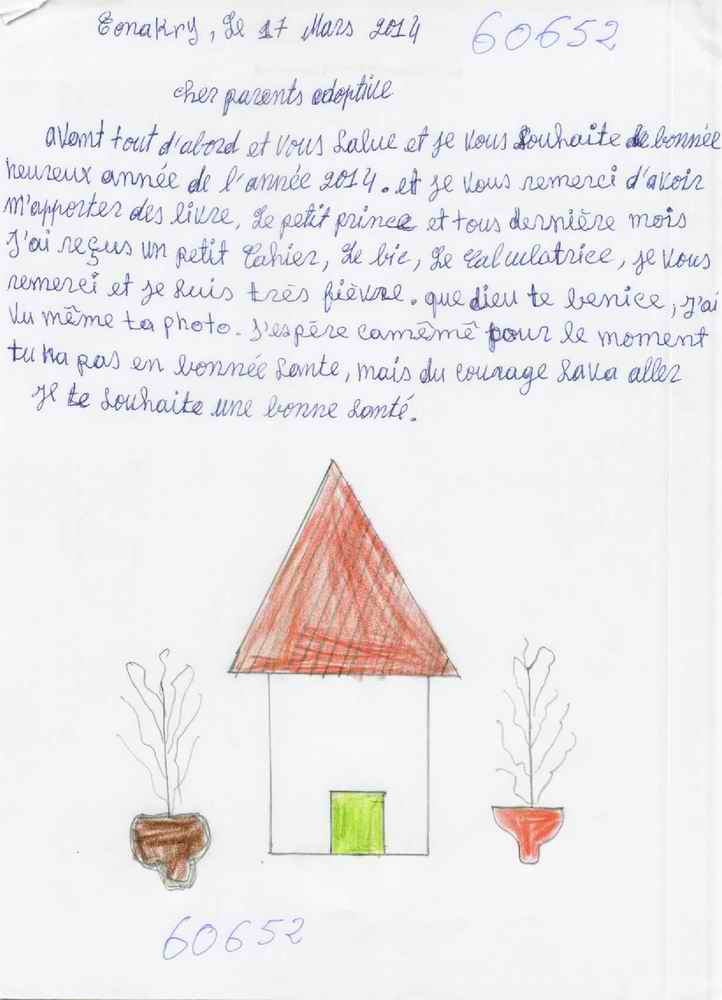 Conakry, Le 17 Mars 2014
60652
cher parents adoptive
avant tout d'abord et vous salue et je vous souhaite de bonnée
heureux année de l'année 2014. et je vous remerci d'avoir
m'apporter des livre, Le petit prince et tous dernière mois
J'ai reçus un petit Cahier, Le bic, Le Calculatrice, je vous
remerci et je suis très fièvre. que dieu te benice, j'ai
vu même ta photo. J'espère camêmê pour le moment
tu na pas en bonnée sante, mais du courage sava aller
je te souhaite une bonne santé.
60652